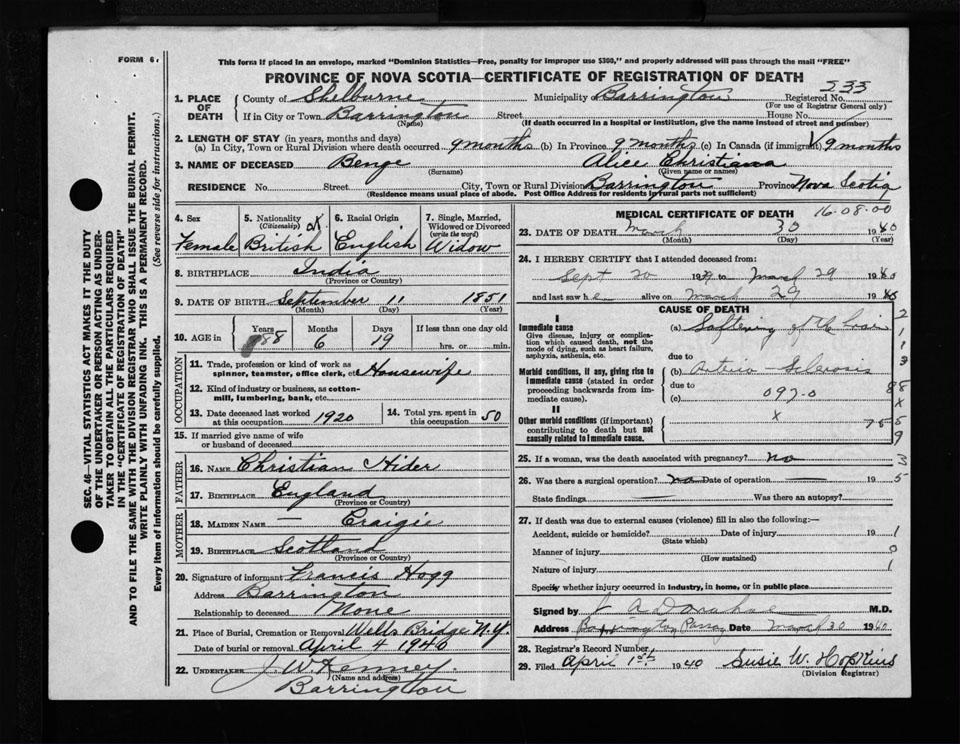 FORM 6.
This form if placed in an envelope, marked "Dominion Statistics—Free, penalty for improper use $300," and properly addressed will pass through the mail "FREE"
PROVINCE OF NOVA SCOTIA—CERTIFICATE OF REGISTRATION OF DEATH
SEC. 46—VITAL STATISTICS ACT MAKES IT THE DUTY
OF THE UNDERTAKER OR PERSON ACTING AS UNDER-
TAKER TO OBTAIN ALL THE PARTICULARS REQUIRED
IN THE "CERTIFICATE OF REGISTRATION OF DEATH"
AND TO FILE THE SAME WITH THE DIVISION REGISTRAR WHO SHALL ISSUE THE BURIAL PERMIT.
WRITE PLAINLY WITH UNFADING INK. THIS IS A PERMANENT RECORD.
Every item of information should be carefully supplied. (See reverse side for instructions.)
1. PLACE OF DEATH County of Shelburne Municipality Barrington Registered No. 233
(For use of Registrar General only)
If in City or Town Barrington Street House No.
(Name) (If death occurred in a hospital or institution, give the name instead of street and number)
2. LENGTH OF STAY (in years, months and days)
(a) In City, Town or Rural Division where death occurred 9 months (b) In Province 9 months (c) In Canada (if immigrant) 9 months
3. NAME OF DECEASED Benge Alice Christiana
(Surname) (Given name or names)
RESIDENCE No. Street City, Town or Rural Division Barrington Province Nova Scotia
(Residence means usual place of abode. Post Office Address for residents in rural parts not sufficient)
4. Sex Female
5. Nationality (Citizenship) British
6. Racial Origin English
7. Single, Married, Widowed or Divorced (write the word) Widow
8. BIRTHPLACE India
(Province or Country)
9. DATE OF BIRTH September 11 1851
(Month) (Day) (Year)
10. AGE in Years 88 Months 6 Days 19 If less than one day old hrs. or min.
OCCUPATION
11. Trade, profession or kind of work as spinner, teamster, office clerk, etc. Housewife
12. Kind of industry or business, as cotton-mill, lumbering, bank, etc.
13. Date deceased last worked at this occupation 1920 14. Total yrs. spent in this occupation 50
15. If married give name of wife or husband of deceased
FATHER
16. NAME Christian Hider
17. BIRTHPLACE England
(Province or Country)
MOTHER
18. MAIDEN NAME — Craigie
19. BIRTHPLACE Scotland
(Province or Country)
20. Signature of informant Francis Hogg
Address Barrington
Relationship to deceased None
21. Place of Burial, Cremation or Removal Wells Bridge N.Y.
Date of burial or removal April 4 1940
22. UNDERTAKER J. W. Kenney
(Name and address)
Barrington
MEDICAL CERTIFICATE OF DEATH 16-08-00
23. DATE OF DEATH March 30 1940
(Month) (Day) (Year)
24. I HEREBY CERTIFY that I attended deceased from:
Sept 20 1939 to March 29 1940
and last saw her alive on March 29 1940
CAUSE OF DEATH
I
Immediate cause
Give disease, injury or complication which caused death, not the mode of dying, such as heart failure, asphyxia, asthenia, etc.
(a) Softening of the brain
due to
Morbid conditions, if any, giving rise to immediate cause (stated in order proceeding backwards from immediate cause).
(b) Arterio-Sclerosis
due to
(c) 097-0
II
Other morbid conditions (if important) contributing to death but not causally related to immediate cause.
x
75
2
1
1
3
8 8
x
5
9
3
5
1
0
1
25. If a woman, was the death associated with pregnancy? no
26. Was there a surgical operation? no Date of operation —
State findings — Was there an autopsy?
27. If death was due to external causes (violence) fill in also the following:—
Accident, suicide or homicide? Date of injury 19
(State which)
Manner of injury
(How sustained)
Nature of injury
Specify whether injury occurred in industry, in home, or in public place
Signed by M.D.
Address Barrington Passag Date March 30 1940
28. Registrar's Record Number
29. Filed April 1st 1940 Susie W. Hopkins
(Division Registrar)